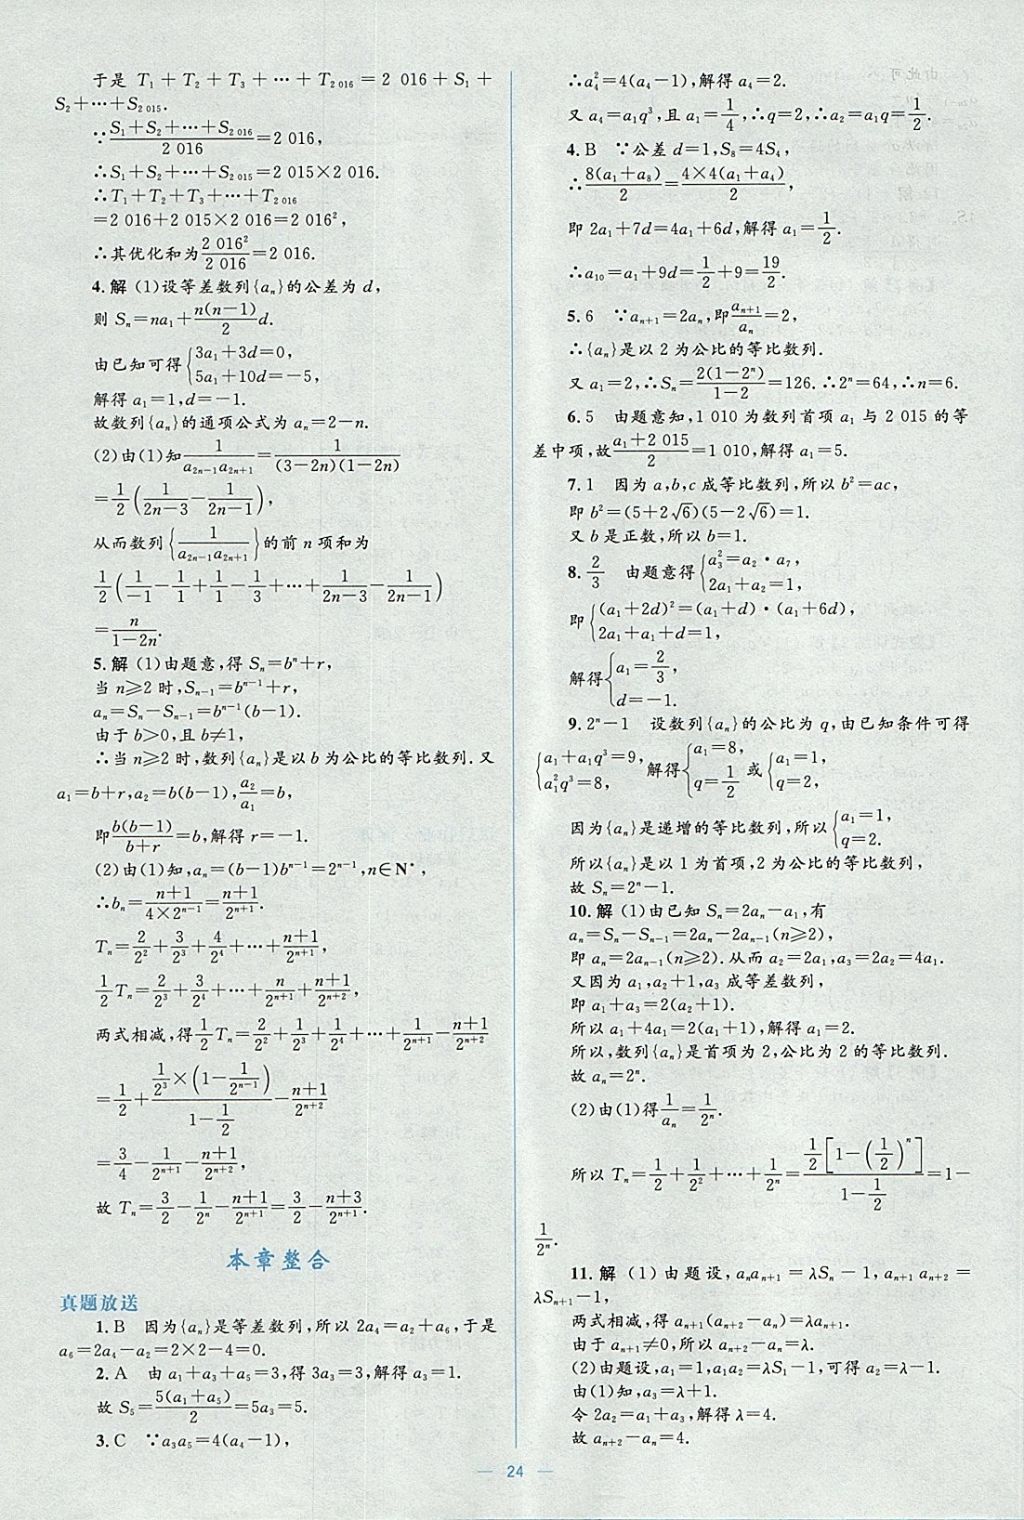 于是 T₁+T₂+T₃+⋯+T₂ ₀₁₆=2 016+S₁+
S₂+⋯+S₂ ₀₁₅.
∵(S₁+S₂+⋯+S₂ ₀₁₆)/2 016=2 016,
∴S₁+S₂+⋯+S₂ ₀₁₅=2 015×2 016.
∴T₁+T₂+T₃+⋯+T₂ ₀₁₆
=2 016+2 015×2 016=2 016²,
∴其优化和为2 016²/2 016=2 016.
4.解 (1)设等差数列{aₙ}的公差为 d,
则 Sₙ=na₁+n(n−1)/2 d.
由已知可得{3a₁+3d=0,
5a₁+10d=−5,
解得 a₁=1,d=−1.
故数列{aₙ}的通项公式为 aₙ=2−n.
(2)由(1)知1/(a₂ₙ₋₁a₂ₙ₊₁)=1/((3−2n)(1−2n))
=1/2(1/(2n−3)−1/(2n−1)),
从而数列{1/(a₂ₙ₋₁a₂ₙ₊₁)}的前 n 项和为
1/2(1/−1−1/1+1/1−1/3+⋯+1/(2n−3)−1/(2n−1))
=n/(1−2n).
5.解 (1)由题意,得 Sₙ=bⁿ+r,
当 n≥2 时,Sₙ₋₁=bⁿ⁻¹+r,
aₙ=Sₙ−Sₙ₋₁=bⁿ⁻¹(b−1).
由于 b>0,且 b≠1,
∴当 n≥2 时,数列{aₙ}是以 b 为公比的等比数列.又
a₁=b+r,a₂=b(b−1),a₂/a₁=b,
即b(b−1)/(b+r)=b,解得 r=−1.
(2)由(1)知,aₙ=(b−1)bⁿ⁻¹=2ⁿ⁻¹,n∈N*,
∴bₙ=(n+1)/(4×2ⁿ⁻¹)=(n+1)/2ⁿ⁺¹.
Tₙ=2/2²+3/2³+4/2⁴+⋯+(n+1)/2ⁿ⁺¹,
1/2 Tₙ=2/2³+3/2⁴+⋯+n/2ⁿ⁺¹+(n+1)/2ⁿ⁺²,
两式相减,得1/2 Tₙ=2/2²+1/2³+1/2⁴+⋯+1/2ⁿ⁺¹−(n+1)/2ⁿ⁺²
=1/2+(1/2³×(1−1/2ⁿ⁻¹))/(1−1/2)−(n+1)/2ⁿ⁺²
=3/4−1/2ⁿ⁺¹−(n+1)/2ⁿ⁺²,
故 Tₙ=3/2−1/2ⁿ−(n+1)/2ⁿ⁺¹=3/2−(n+3)/2ⁿ⁺¹.
本章整合
真题放送
1.B 因为{aₙ}是等差数列,所以 2a₄=a₂+a₆,于是
a₆=2a₄−a₂=2×2−4=0.
2.A 由 a₁+a₃+a₅=3,得 3a₃=3,解得 a₃=1.
故 S₅=5(a₁+a₅)/2=5a₃=5.
3.C ∵a₃a₅=4(a₄−1),
∴a₄²=4(a₄−1),解得 a₄=2.
又 a₄=a₁q³,且 a₁=1/4,∴q=2,∴a₂=a₁q=1/2.
4.B ∵公差 d=1,S₈=4S₄,
∴8(a₁+a₈)/2=4×4(a₁+a₄)/2,
即 2a₁+7d=4a₁+6d,解得 a₁=1/2.
∴a₁₀=a₁+9d=1/2+9=19/2.
5.6 ∵aₙ₊₁=2aₙ,即aₙ₊₁/aₙ=2,
∴{aₙ}是以 2 为公比的等比数列.
又 a₁=2,∴Sₙ=2(1−2ⁿ)/(1−2)=126.∴2ⁿ=64,∴n=6.
6.5 由题意知,1 010 为数列首项 a₁ 与 2 015 的等
差中项,故(a₁+2 015)/2=1 010,解得 a₁=5.
7.1 因为 a,b,c 成等比数列,所以 b²=ac,
即 b²=(5+2√6)(5−2√6)=1.
又 b 是正数,所以 b=1.
8.2/3 由题意得{a₃²=a₂·a₇,
2a₁+a₂=1,
即{(a₁+2d)²=(a₁+d)·(a₁+6d),
2a₁+a₁+d=1,
解得{a₁=2/3,
d=−1.
9.2ⁿ−1 设数列{aₙ}的公比为 q,由已知条件可得
{a₁+a₁q³=9, 解得{a₁=8, 或{a₁=1,
a₁²q³=8, q=1/2 q=2,
因为{aₙ}是递增的等比数列,所以{a₁=1,
q=2.
所以{aₙ}是以 1 为首项,2 为公比的等比数列,
故 Sₙ=2ⁿ−1.
10.解 (1)由已知 Sₙ=2aₙ−a₁,有
aₙ=Sₙ−Sₙ₋₁=2aₙ−2aₙ₋₁(n≥2),
即 aₙ=2aₙ₋₁(n≥2).从而 a₂=2a₁,a₃=2a₂=4a₁.
又因为 a₁,a₂+1,a₃ 成等差数列,
即 a₁+a₃=2(a₂+1).
所以 a₁+4a₁=2(2a₁+1),解得 a₁=2.
所以,数列{aₙ}是首项为 2,公比为 2 的等比数列.
故 aₙ=2ⁿ.
(2)由(1)得1/aₙ=1/2ⁿ.
所以 Tₙ=1/2+1/2²+⋯+1/2ⁿ=(1/2[1−(1/2)ⁿ])/(1−1/2)=1−
1/2ⁿ.
11.解 (1)由题设,aₙaₙ₊₁=λSₙ−1,aₙ₊₁aₙ₊₂=
λSₙ₊₁−1,
两式相减,得 aₙ₊₁(aₙ₊₂−aₙ)=λaₙ₊₁.
由于 aₙ₊₁≠0,所以 aₙ₊₂−aₙ=λ.
(2)由题设,a₁=1,a₁a₂=λS₁−1,可得 a₂=λ−1.
由(1)知,a₃=λ+1.
令 2a₂=a₁+a₃,解得 λ=4.
故 aₙ₊₂−aₙ=4.
— 24 —